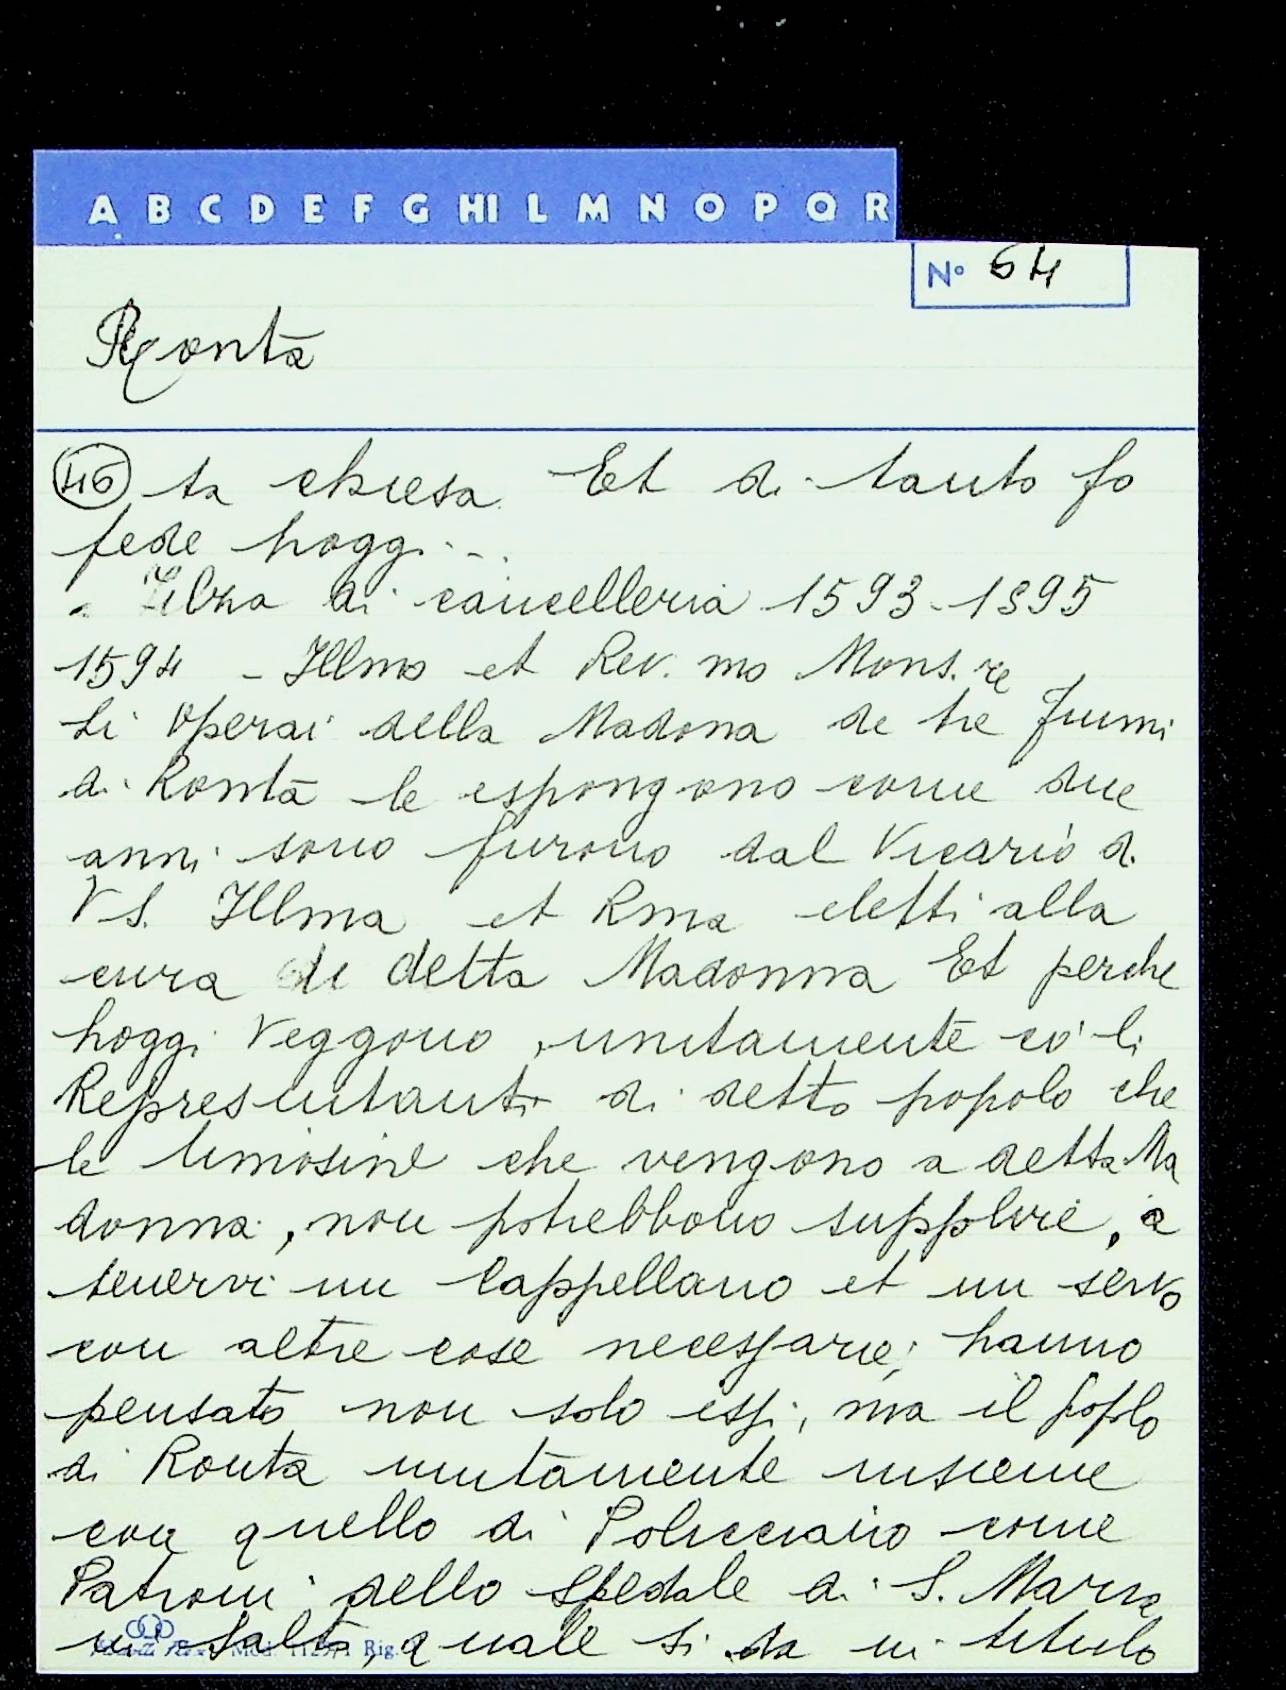 A B C D E F G HI L M N O P Q R
N° 64
Ronta
46 ta chiesa. Et di tanto fo
fede hoggi...
di cancelleria 1593-1595
1594 - Illmo et Rev.mo Mons.re
Li operai della Madona de tre fiumi
di Ronta le espongono come due
anni sono furono dal Vicario di
VS. Illma et Rma eletti alla
cura di detta Madonna Et perche
hoggi veggono, unitamente cò li
Representanti di detto popolo che
le limosine che vengono a detta Ma
donna, non potrebbono supplire, a
tenervi un Cappellano et un servo
con altre cose necessarie; hanno
pensato non solo essi, ma il popolo
di Ronta unitamente insieme
con quello di Pulicciano come
Patroni dello Spedale di S. Maria
in Salto, quale si da in titulo
Mod. Rig.